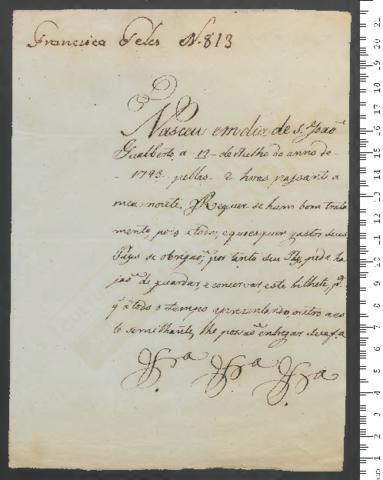 Francisca Teles N. 813
Nasceu em dia de S. João
Gualberto, a 12 de Julho do anno de
1793. pellas 2 horas passante a
mea noite, Requer se hum bom trata
mento, pois todos, e quaesquer gastos seus
Pays se obrigaõ, por tanto seu Pay, pede ha
jaõ de guardar, e conservar este bilhete, pª
q̃ a todo o tempo aprezentando, outro a es
te semilhante, lhe possaõ entregar sua fª.